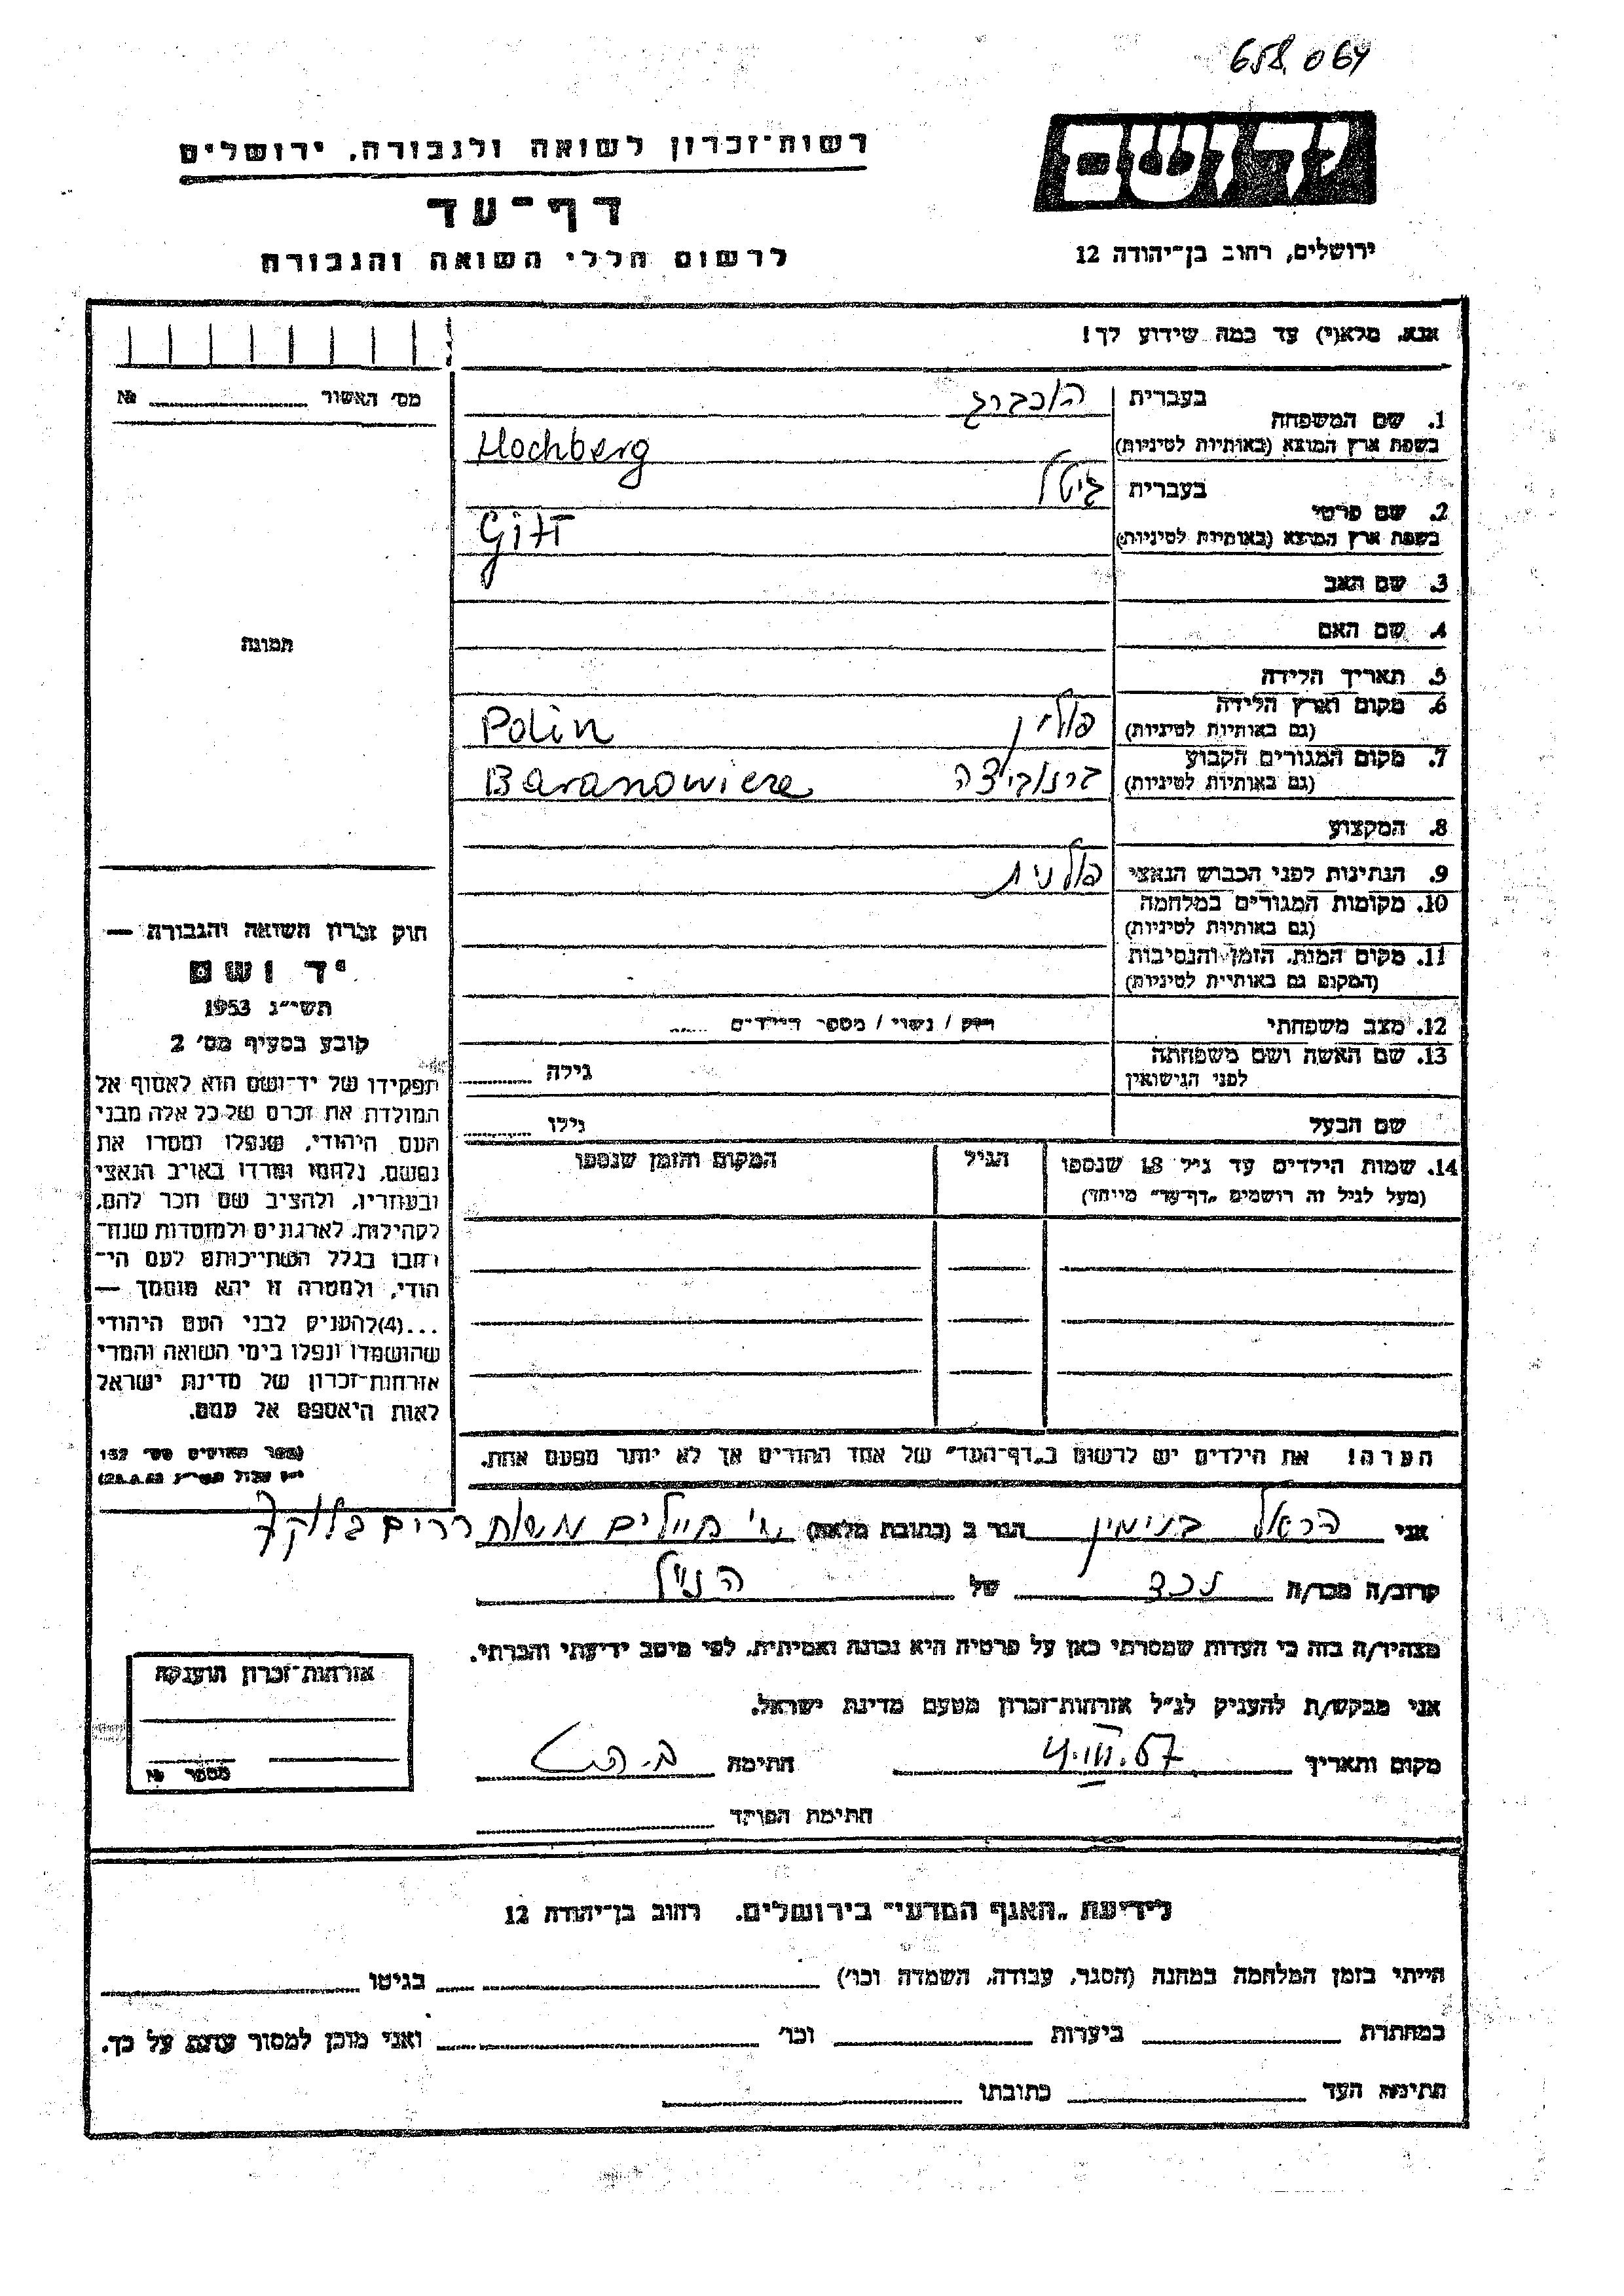 658 064
יד ושם
רשות־זכרון לשואה ולגבורה, ירושלים
דף־עד
לרשום חללי השואה והגבורה
ירושלים, רחוב בן־יהודה 12
אנא, מלא(י) עד כמה שידוע לך!
מס׳ האשור № ........
תמונה
1. שם המשפחה
בעברית הוכברג
בשפת ארץ המוצא (באותיות לטיניות) Hochberg
2. שם פרטי
בעברית גיטל
בשפת ארץ המוצא (באותיות לטיניות) Gitl
3. שם האב
4. שם האם
5. תאריך הלידה
6. מקום וארץ הלידה
(גם באותיות לטיניות) פולין Polin
7. מקום המגורים הקבוע
(גם באותיות לטיניות) ברנוביצה Baranowicze
8. המקצוע
9. הנתינות לפני הכבוש הנאצי פולנית
10. מקומות המגורים במלחמה
(גם באותיות לטיניות)
11. מקום המות, הזמן והנסיבות
(המקום גם באותיות לטיניות)
12. מצב משפחתי רווק / נשוי / מספר הילדים ......
13. שם האשה ושם משפחתה
לפני הנישואין גילה ........
שם הבעל גילו ........
14. שמות הילדים עד גיל 18 שנספו
(מעל לגיל זה רושמים „דף־עד״ מיוחד)
הגיל
המקום והזמן שנספו
הערה! את הילדים יש לרשום ב„דף־העד״ של אחד ההורים אך לא יותר מפעם אחת.
חוק זכרון השואה והגבורה —
יד ושם
תשי״ג 1953
קובע בסעיף מס׳ 2
תפקידו של יד־ושם הוא לאסוף אל
המולדת את זכרם של כל אלה מבני
העם היהודי, שנפלו ומסרו את
נפשם, נלחמו ומרדו באויב הנאצי
ובעוזריו, ולהציב שם וזכר להם,
לקהילות, לארגונים ולמוסדות שנח־
רבו בגלל השתייכותם לעם הי־
הודי, ולמטרה זו יהא מוסמך —
...(4)להעניק לבני העם היהודי
שהושמדו ונפלו בימי השואה והמרי
אזרחות־זכרון של מדינת ישראל
לאות היאספם אל עמם.
(ספר החוקים מס׳ 132
אני הראל בנימין הגר ב (כתובת מלאה) חיילים משוחררים בלוק 7
קרוב/ה מכר/ה נכד של הנ״ל
מצהיר/ה בזה כי העדות שמסרתי כאן על פרטיה היא נכונה ואמיתית, לפי מיטב ידיעתי והכרתי.
אני מבקש/ת להעניק לנ״ל אזרחות־זכרון מטעם מדינת ישראל.
מקום ותאריך 4.III.57 חתימה
חתימת הפוקד
אזרחות־זכרון הוענקה
מספר №
לידיעת „האגף המדעי״ בירושלים, רחוב בן־יהודה 12
הייתי בזמן המלחמה במחנה (הסגר, עבודה, השמדה וכו׳) בגיטו
במחתרת ביערות וכו׳ ואני מוכן למסור עדות על כך.
חתימת העד כתובתו